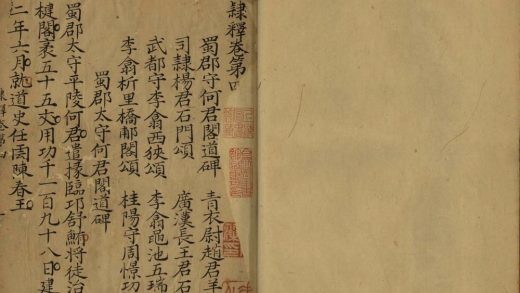 隸釋卷第四
蜀郡守何君閣道碑 青衣尉趙君羊
司隸楊君石門頌 廣漢長王君石
武都守李翕西狹頌 李翕黽池五瑞
李翕析里橋郙閣頌 桂陽守周憬功
蜀郡太守何君閣道碑
蜀郡太守平陵何君遣掾臨邛舒鮪將徒治
楗閣袤五十五丈用功千一百九十八日建
二年六月就道史任雲陳春主
隸釋卷第四